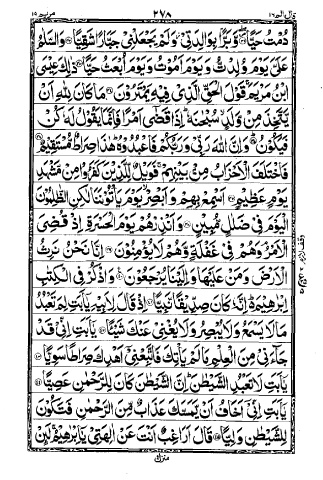 ٢٧٨
دُمْتُ حَيًّا ۝ وَّبَرًّۢا بِوَالِدَتِيْ ۫ وَلَمْ يَجْعَلْنِيْ جَبَّارًا شَقِيًّا ۝ وَالسَّلٰمُ
عَلَيَّ يَوْمَ وُلِدْتُّ وَيَوْمَ اَمُوْتُ وَيَوْمَ اُبْعَثُ حَيًّا ۝ ذٰلِكَ عِيْسَى
ابْنُ مَرْيَمَ ۚ قَوْلَ الْحَقِّ الَّذِيْ فِيْهِ يَمْتَرُوْنَ ۝ مَا كَانَ لِلّٰهِ اَنْ
يَّتَّخِذَ مِنْ وَّلَدٍ ۙ سُبْحٰنَهٗ ؕ اِذَا قَضٰۤى اَمْرًا فَاِنَّمَا يَقُوْلُ لَهٗ كُنْ
فَيَكُوْنُ ۝ وَاِنَّ اللّٰهَ رَبِّيْ وَرَبُّكُمْ فَاعْبُدُوْهُ ؕ هٰذَا صِرَاطٌ مُّسْتَقِيْمٌ ۝
فَاخْتَلَفَ الْاَحْزَابُ مِنْۢ بَيْنِهِمْ ۚ فَوَيْلٌ لِّلَّذِيْنَ كَفَرُوْا مِنْ مَّشْهَدِ
يَوْمٍ عَظِيْمٍ ۝ اَسْمِعْ بِهِمْ وَاَبْصِرْ ۙ يَوْمَ يَاْتُوْنَنَا لٰكِنِ الظّٰلِمُوْنَ
الْيَوْمَ فِيْ ضَلٰلٍ مُّبِيْنٍ ۝ وَاَنْذِرْهُمْ يَوْمَ الْحَسْرَةِ اِذْ قُضِيَ
الْاَمْرُ ۘ وَهُمْ فِيْ غَفْلَةٍ وَّهُمْ لَا يُؤْمِنُوْنَ ۝ اِنَّا نَحْنُ نَرِثُ
الْاَرْضَ وَمَنْ عَلَيْهَا وَاِلَيْنَا يُرْجَعُوْنَ ۝ وَاذْكُرْ فِي الْكِتٰبِ
اِبْرٰهِيْمَ ؕ اِنَّهٗ كَانَ صِدِّيْقًا نَّبِيًّا ۝ اِذْ قَالَ لِاَبِيْهِ يٰۤاَبَتِ لِمَ تَعْبُدُ
مَا لَا يَسْمَعُ وَلَا يُبْصِرُ وَلَا يُغْنِيْ عَنْكَ شَيْئًا ۝ يٰۤاَبَتِ اِنِّيْ قَدْ
جَآءَنِيْ مِنَ الْعِلْمِ مَا لَمْ يَاْتِكَ فَاتَّبِعْنِيْۤ اَهْدِكَ صِرَاطًا سَوِيًّا ۝
يٰۤاَبَتِ لَا تَعْبُدِ الشَّيْطٰنَ ؕ اِنَّ الشَّيْطٰنَ كَانَ لِلرَّحْمٰنِ عَصِيًّا ۝
يٰۤاَبَتِ اِنِّيْۤ اَخَافُ اَنْ يَّمَسَّكَ عَذَابٌ مِّنَ الرَّحْمٰنِ فَتَكُوْنَ
لِلشَّيْطٰنِ وَلِيًّا ۝ قَالَ اَرَاغِبٌ اَنْتَ عَنْ اٰلِهَتِيْ يٰۤاِبْرٰهِيْمُ ۚ لَئِنْ